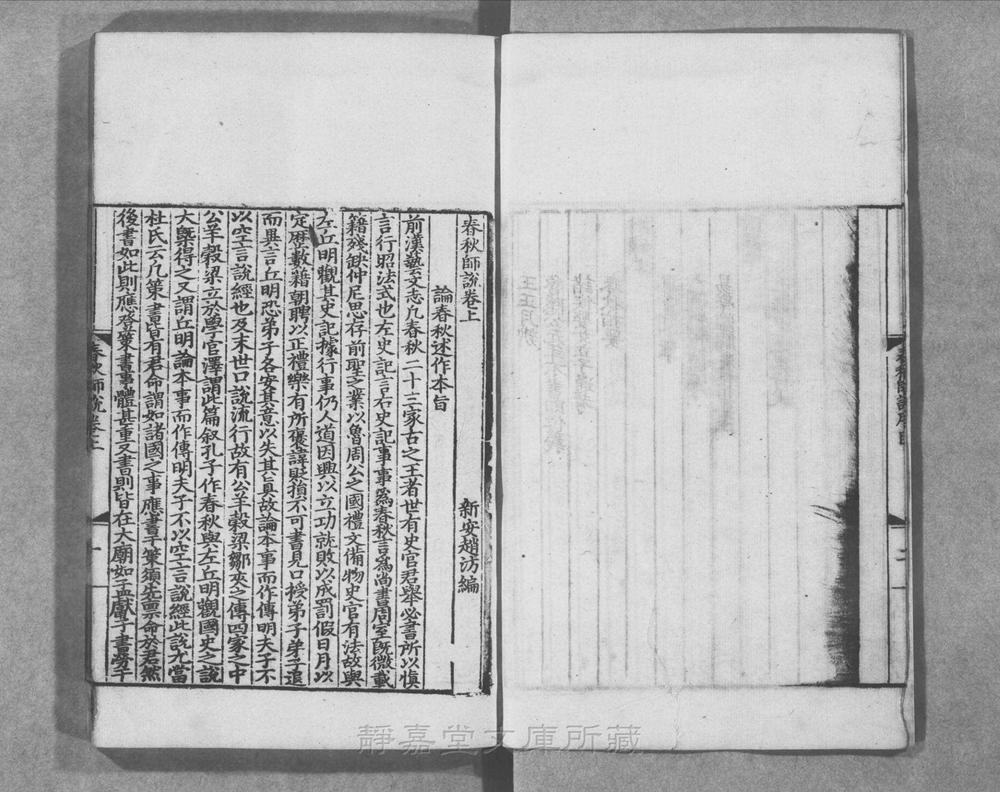 春秋師說卷上
新安趙汸編
論春秋述作本旨
前漢藝文志凡春秋二十三家古之王者世有史官君舉必書所以慎
言行昭法式也左史記言右史記事事爲春秋言爲尚書周室旣微載
籍殘缺仲尼思存前聖之業以魯周公之國禮文備物史官有法故與
左丘明觀其史記據行事仍人道因興以立功就敗以成罰假日月以
定歷數藉朝聘以正禮樂有所褒諱貶損不可書見口授弟子弟子退
而異言丘明恐弟子各安其意以失其眞故論本事而作傳明夫子不
以空言說經也及末世口說流行故有公羊穀梁鄒夾之傳四家之中
公羊穀梁立於學官澤謂此篇叙孔子作春秋與左丘明觀國史之說
大槩得之又謂丘明論本事而作傳明夫子不以空言說經此說尤當
杜氏云凡策書皆有君命謂如諸國之事應書于策須先禀命於君然
後書如此則應登策書事體甚重又書則皆在大廟如孟獻子書勞于
春秋師說卷上
一
二
靜嘉堂文庫所藏